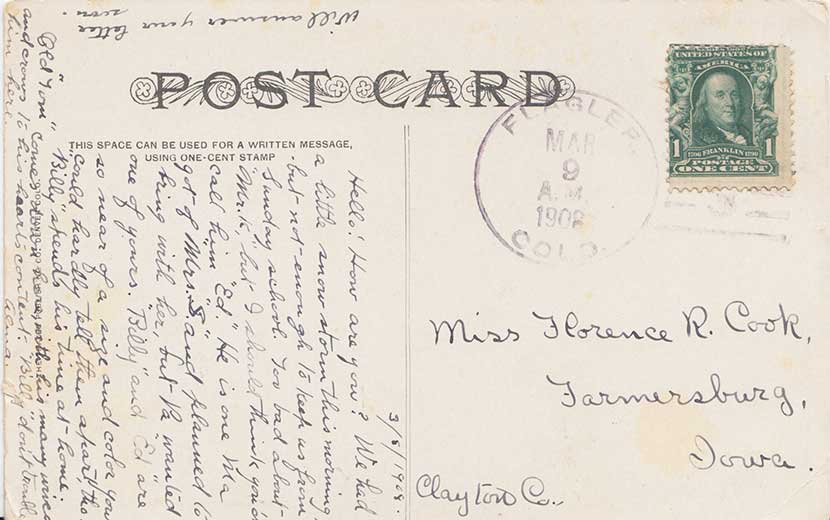 Will answer your letter soon.
POST CARD
THIS SPACE CAN BE USED FOR A WRITTEN MESSAGE,
USING ONE-CENT STAMP
3/8/1908.
Hello! How are you? We had
a little snow storm this morning,
but not enough to keep us from
Sunday school. Too bad about
"Mr. K" but I should think you'd
call him "Ed." He is one Ma
got of Mrs. S and planned to
bring with her, but Pa wanted
one of yours. "Billy" and Ed are
so near of a size and color you
could hardly tell them apart, tho.
"Billy" spends his time at home.
"Old Tom" comes with his many wives
and crows to his hearts content. "Billy" don't trouble
him here.
Alva.
FLAGLER,
MAR
9
A.M.
1908
COLO.
UNITED STATES OF
AMERICA
1
1706 FRANKLIN 1790
POSTAGE
ONE CENT
1
Miss Florence R. Cook,
Farmersburg,
Iowa.
Clayton Co.